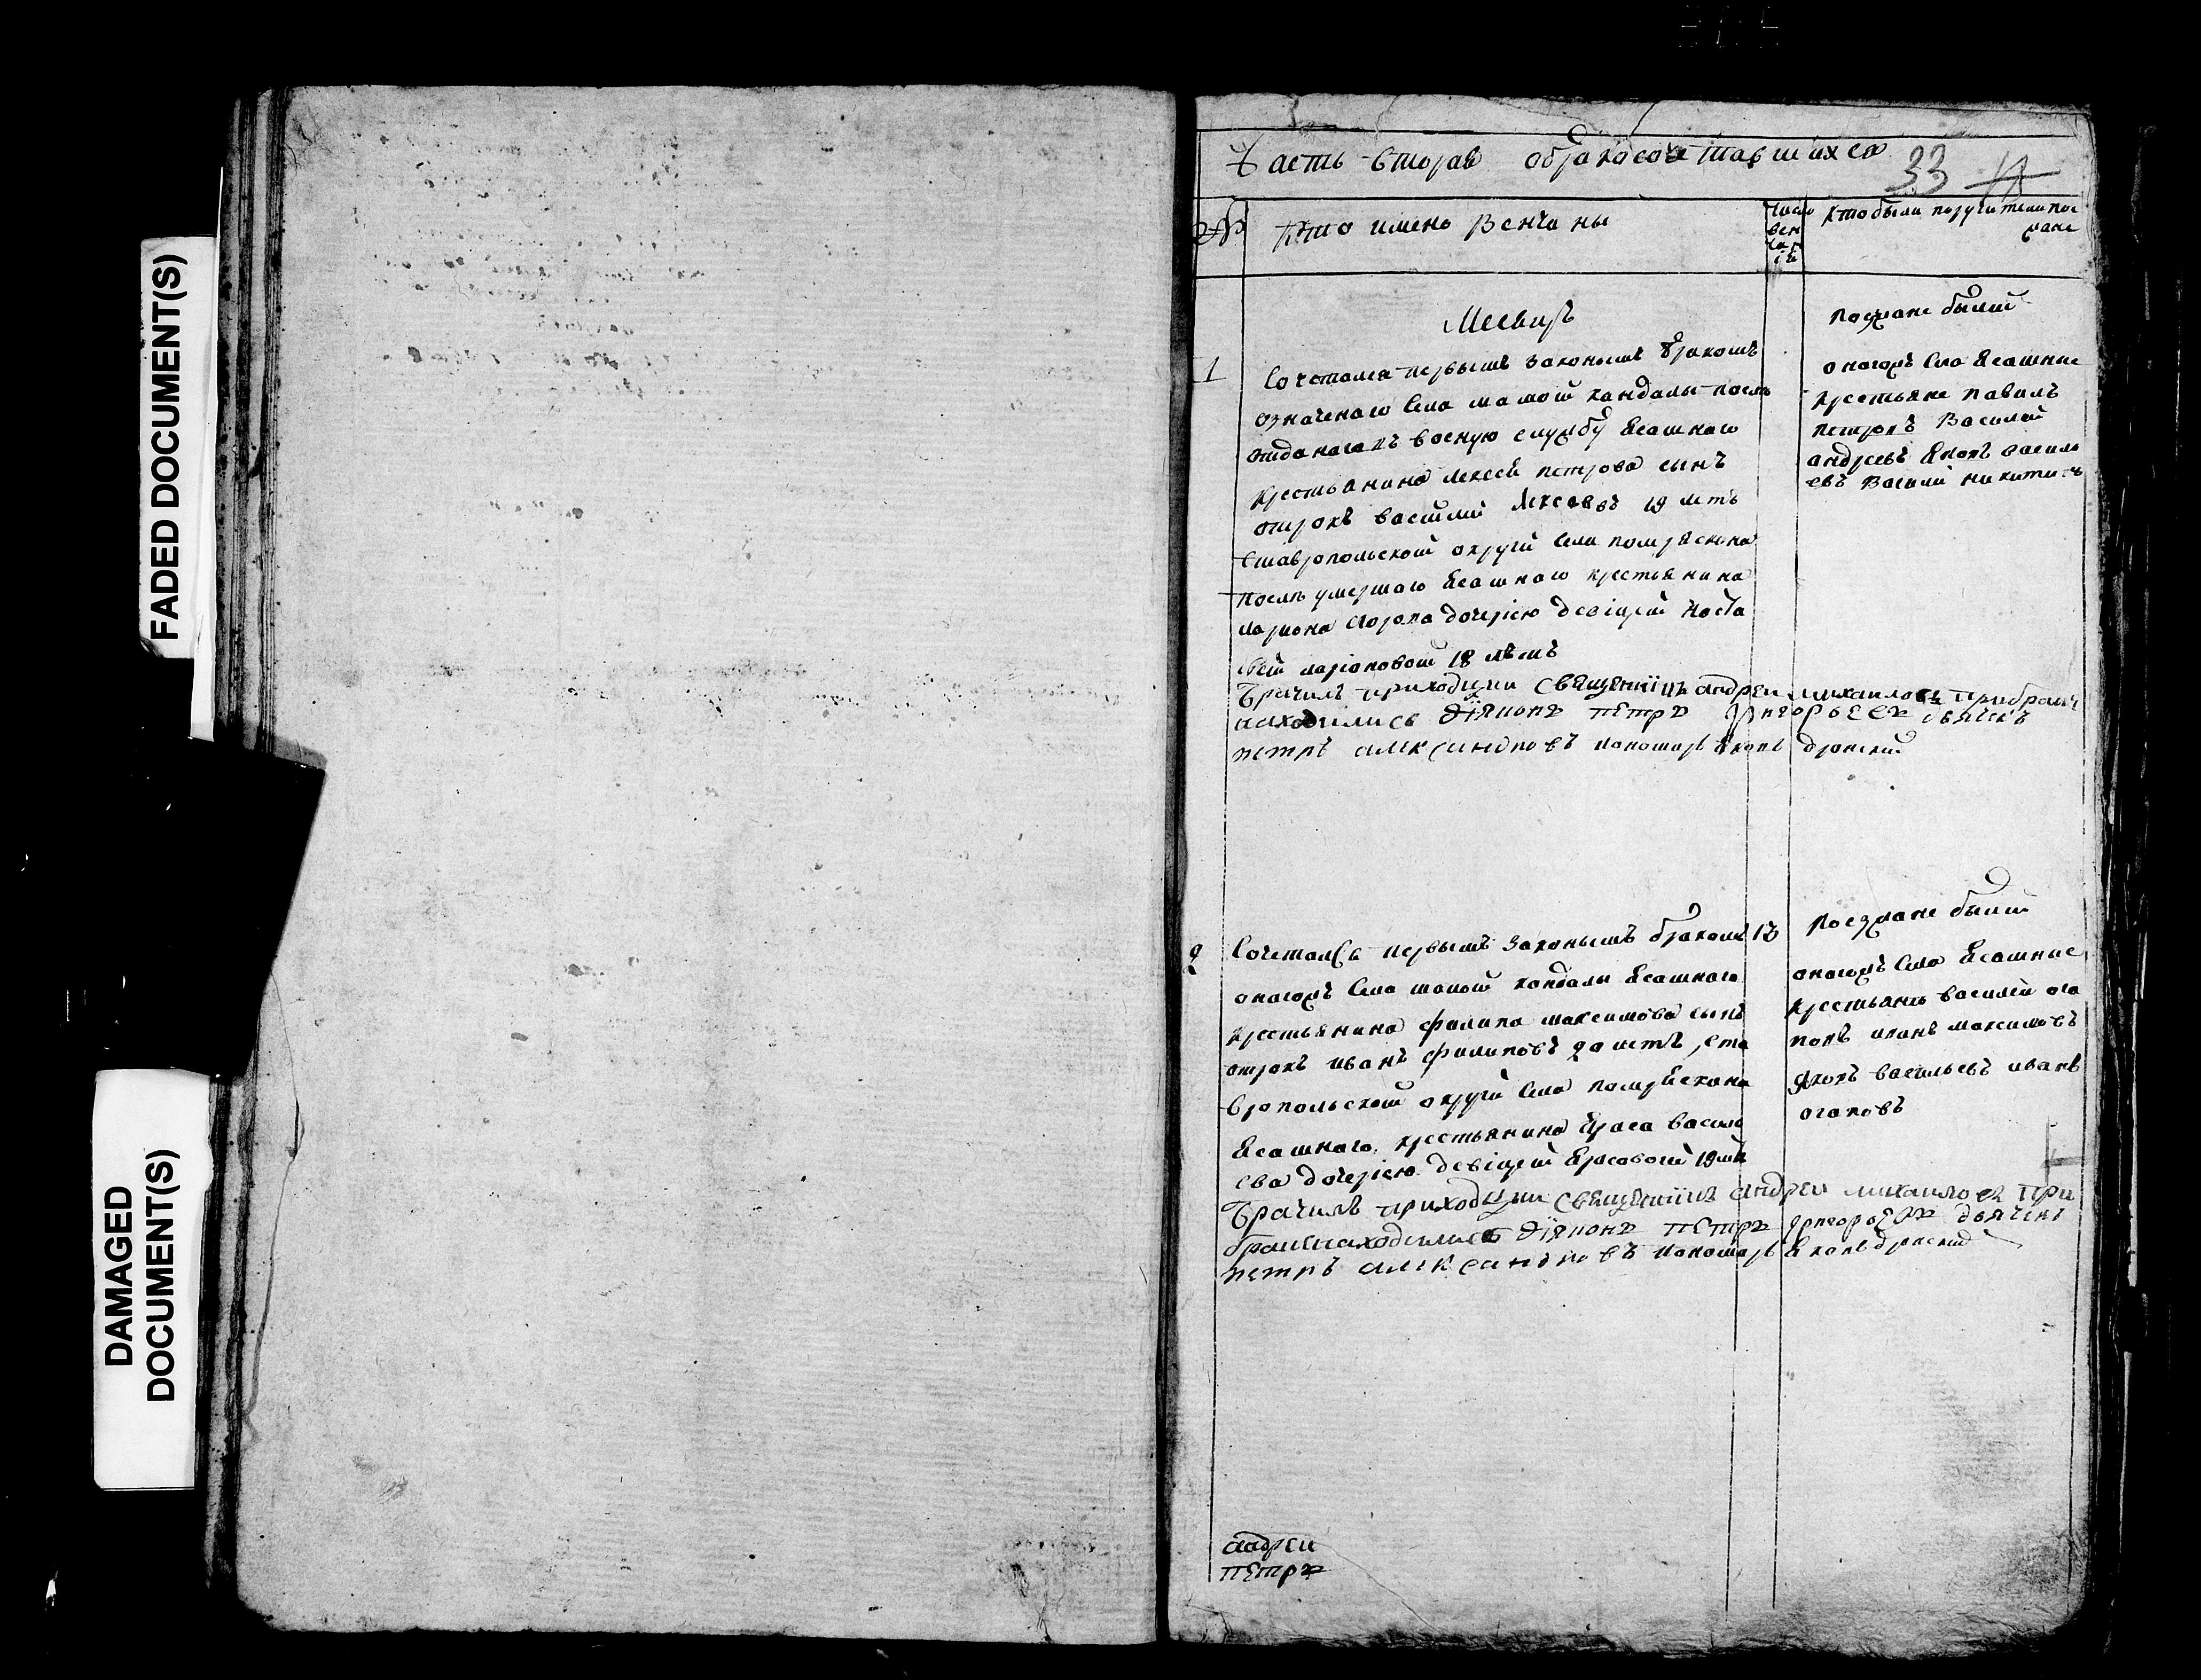 FADED DOCUMENT(S)
DAMAGED
DOCUMENT(S)
Часть вторая обракосочетавшихся
33
№
Кто имено Венчаны
число
вен
чан
iя
Кто были поручители пое
зжане
1
Сочетался первымъ законымъ бракомъ
означенаго села малой кандалы посль
отданаго въ военую службу Ясашнаго
крестьянина Лексея петрова сынъ
отрокъ василий Лексеевъ 19 летъ
Ставропольской округи села помряскина
посль умершаго Ясашнаго крестьянина
дочерiею девiцей Наста
лариоповой 18 лѣтъ
Брачилъ приходцки священнiкъ андреи михаиловъ при браке
находились дiяконъ пЕтръ григорьевъ дьячекъ
петръ александровъ пономарь Яковъ
Поезжане были
оногожъ села Ясашные
крестьяне павилъ
петровъ Василей
андреевъ Яковъ василь
евъ Василий никитинъ
2
Сочетался первымъ законымъ бракомъ 17
оногожъ села малой кандалы Ясашнаго
крестьянина филипа максимова сынъ
отрокъ иванъ филиповъ 20 летъ, ста
вропольской округи села помряскина
Ясашнаго крестьянина Ераса василь
ева дочерiею девiцей Ерасовой 19 лѣ
Брачилъ приходцки священнiкъ андреи михаиловъ при
браке находились дiяконъ пЕтръ григорьевъ дьячекъ
петръ александровъ пономарь Яковъ
Поезжане были
оногожъ села Ясашные
крестьянь василей ага
повъ иванъ максимовъ
Яковъ васильевъ иванъ
агаповъ
андреи
пЕтръ